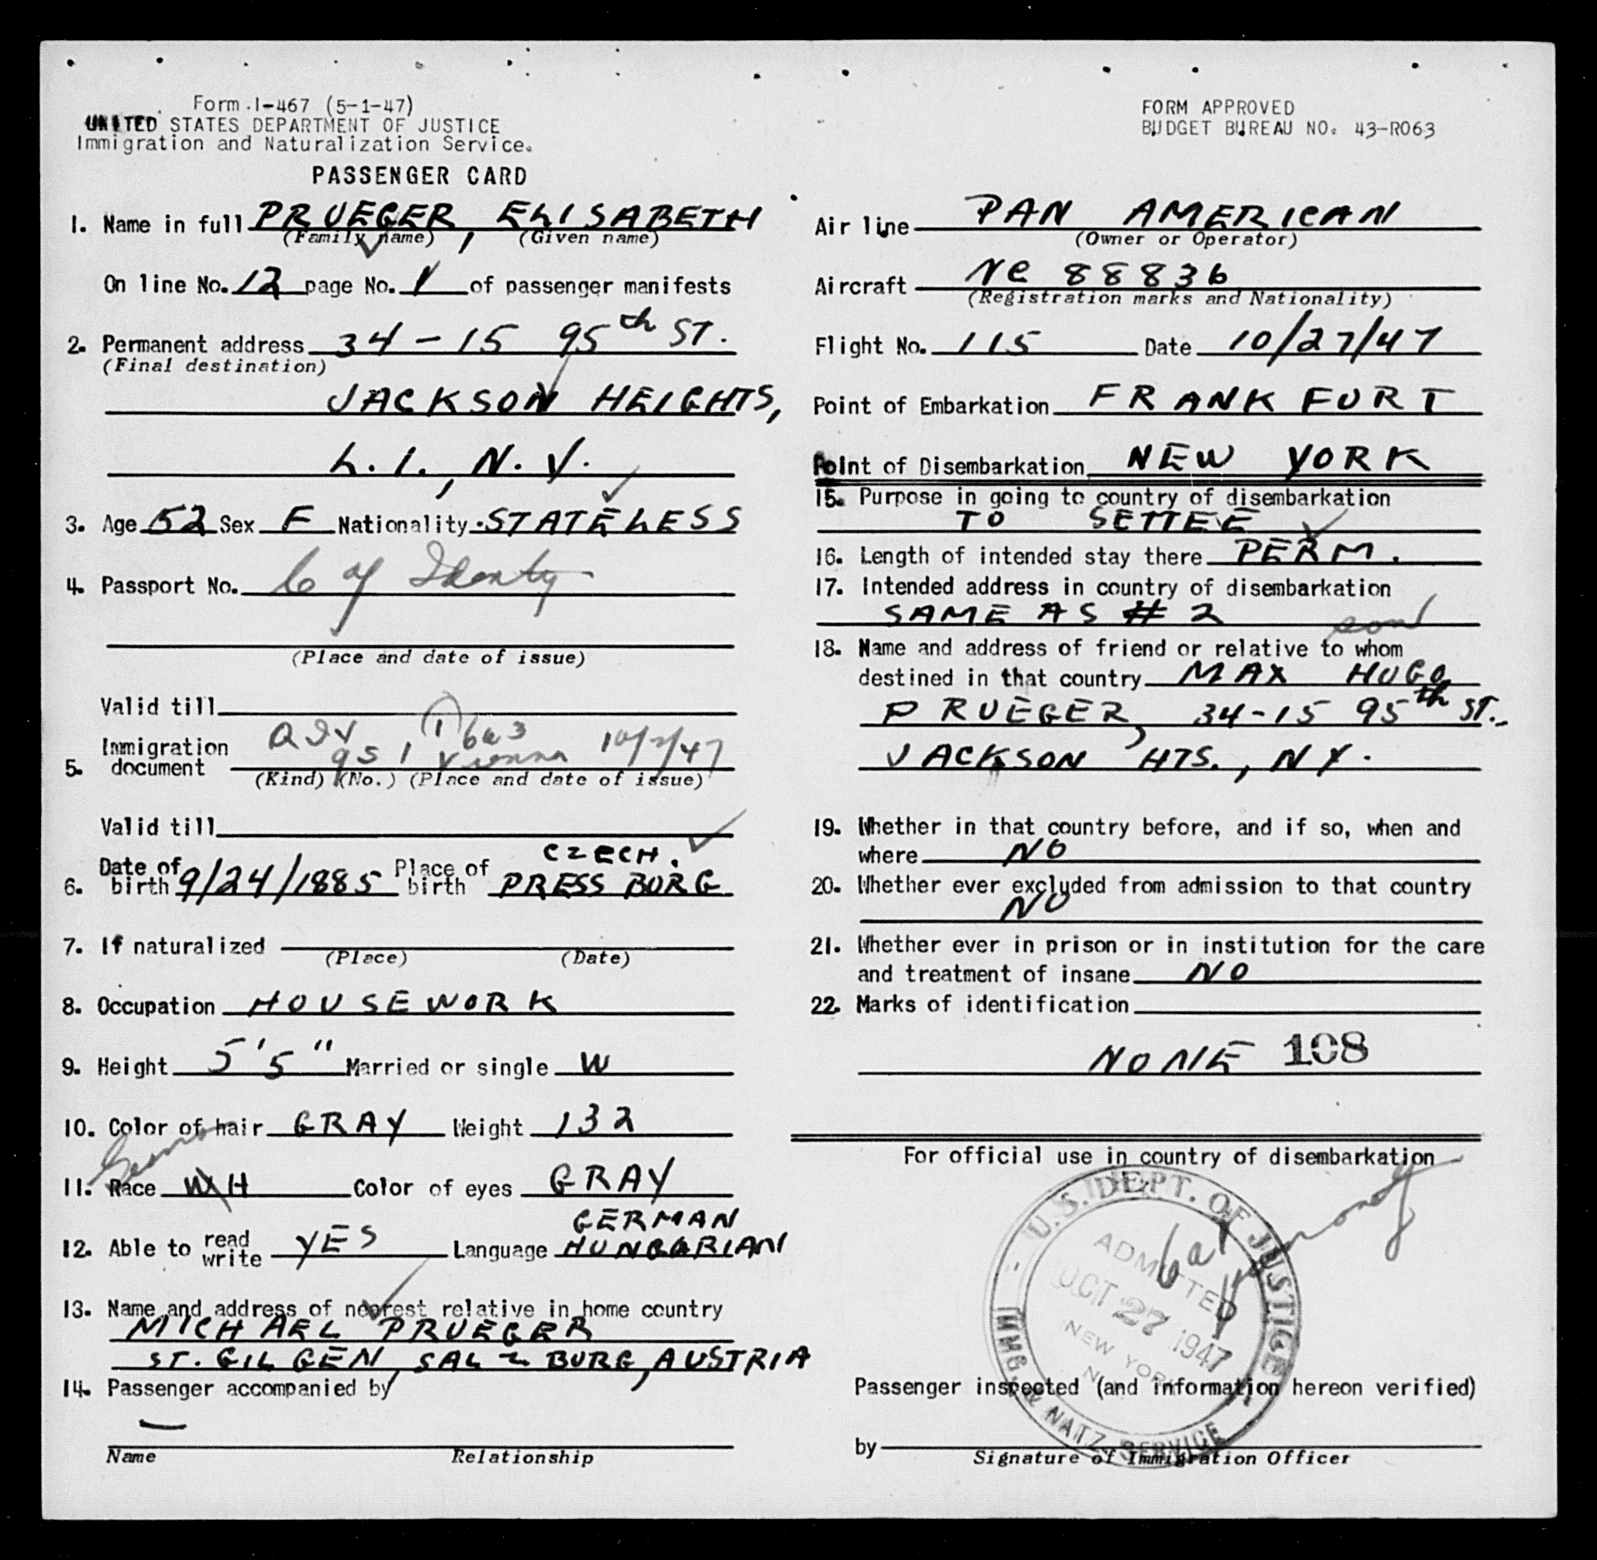 Form I-467 (5-1-47)
UNITED STATES DEPARTMENT OF JUSTICE
Immigration and Naturalization Service.
PASSENGER CARD
1. Name in full PRUEGER, ELISABETH
(Family name) (Given name)
On line No. 12 page No. 1 of passenger manifests
2. Permanent address 34-15 95th ST.
(Final destination)
JACKSON HEIGHTS,
L.I., N.Y.
3. Age 52 Sex F Nationality STATELESS
4. Passport No. C of Identy
(Place and date of issue)
Valid till
5. Immigration document QIV 951 Vienna 10/2/47
(Kind) (No.) (Place and date of issue)
Valid till
6. Date of birth 9/24/1885 Place of birth CZECH. PRESSBURG
7. If naturalized
(Place) (Date)
8. Occupation HOUSEWORK
9. Height 5'5" Married or single W
10. Color of hair GRAY Weight 132
German
11. Race WH Color of eyes GRAY
12. Able to read write YES Language GERMAN HUNGARIAN
13. Name and address of nearest relative in home country
MICHAEL PRUEGER
ST. GILGEN, SALZBURG, AUSTRIA
14. Passenger accompanied by
—
Name Relationship
FORM APPROVED
BUDGET BUREAU NO. 43-R063
Air line PAN AMERICAN
(Owner or Operator)
Aircraft NC 88836
(Registration marks and Nationality)
Flight No. 115 Date 10/27/47
Point of Embarkation FRANKFURT
Point of Disembarkation NEW YORK
15. Purpose in going to country of disembarkation
TO SETTEE
16. Length of intended stay there PERM.
17. Intended address in country of disembarkation
SAME AS # 2
son
18. Name and address of friend or relative to whom
destined in that country MAX HUGO
PRUEGER, 34-15 95th ST.,
JACKSON HTS., NY.
19. Whether in that country before, and if so, when and
where NO
20. Whether ever excluded from admission to that country
NO
21. Whether ever in prison or in institution for the care
and treatment of insane NO
22. Marks of identification
NONE 108
For official use in country of disembarkation
U.S. DEPT. OF JUSTICE
ADMITTED
OCT 27 1947
NEW YORK
N.Y.
IMMG. & NATZ. SERVICE
Passenger inspected (and information hereon verified)
by
Signature of Immigration Officer